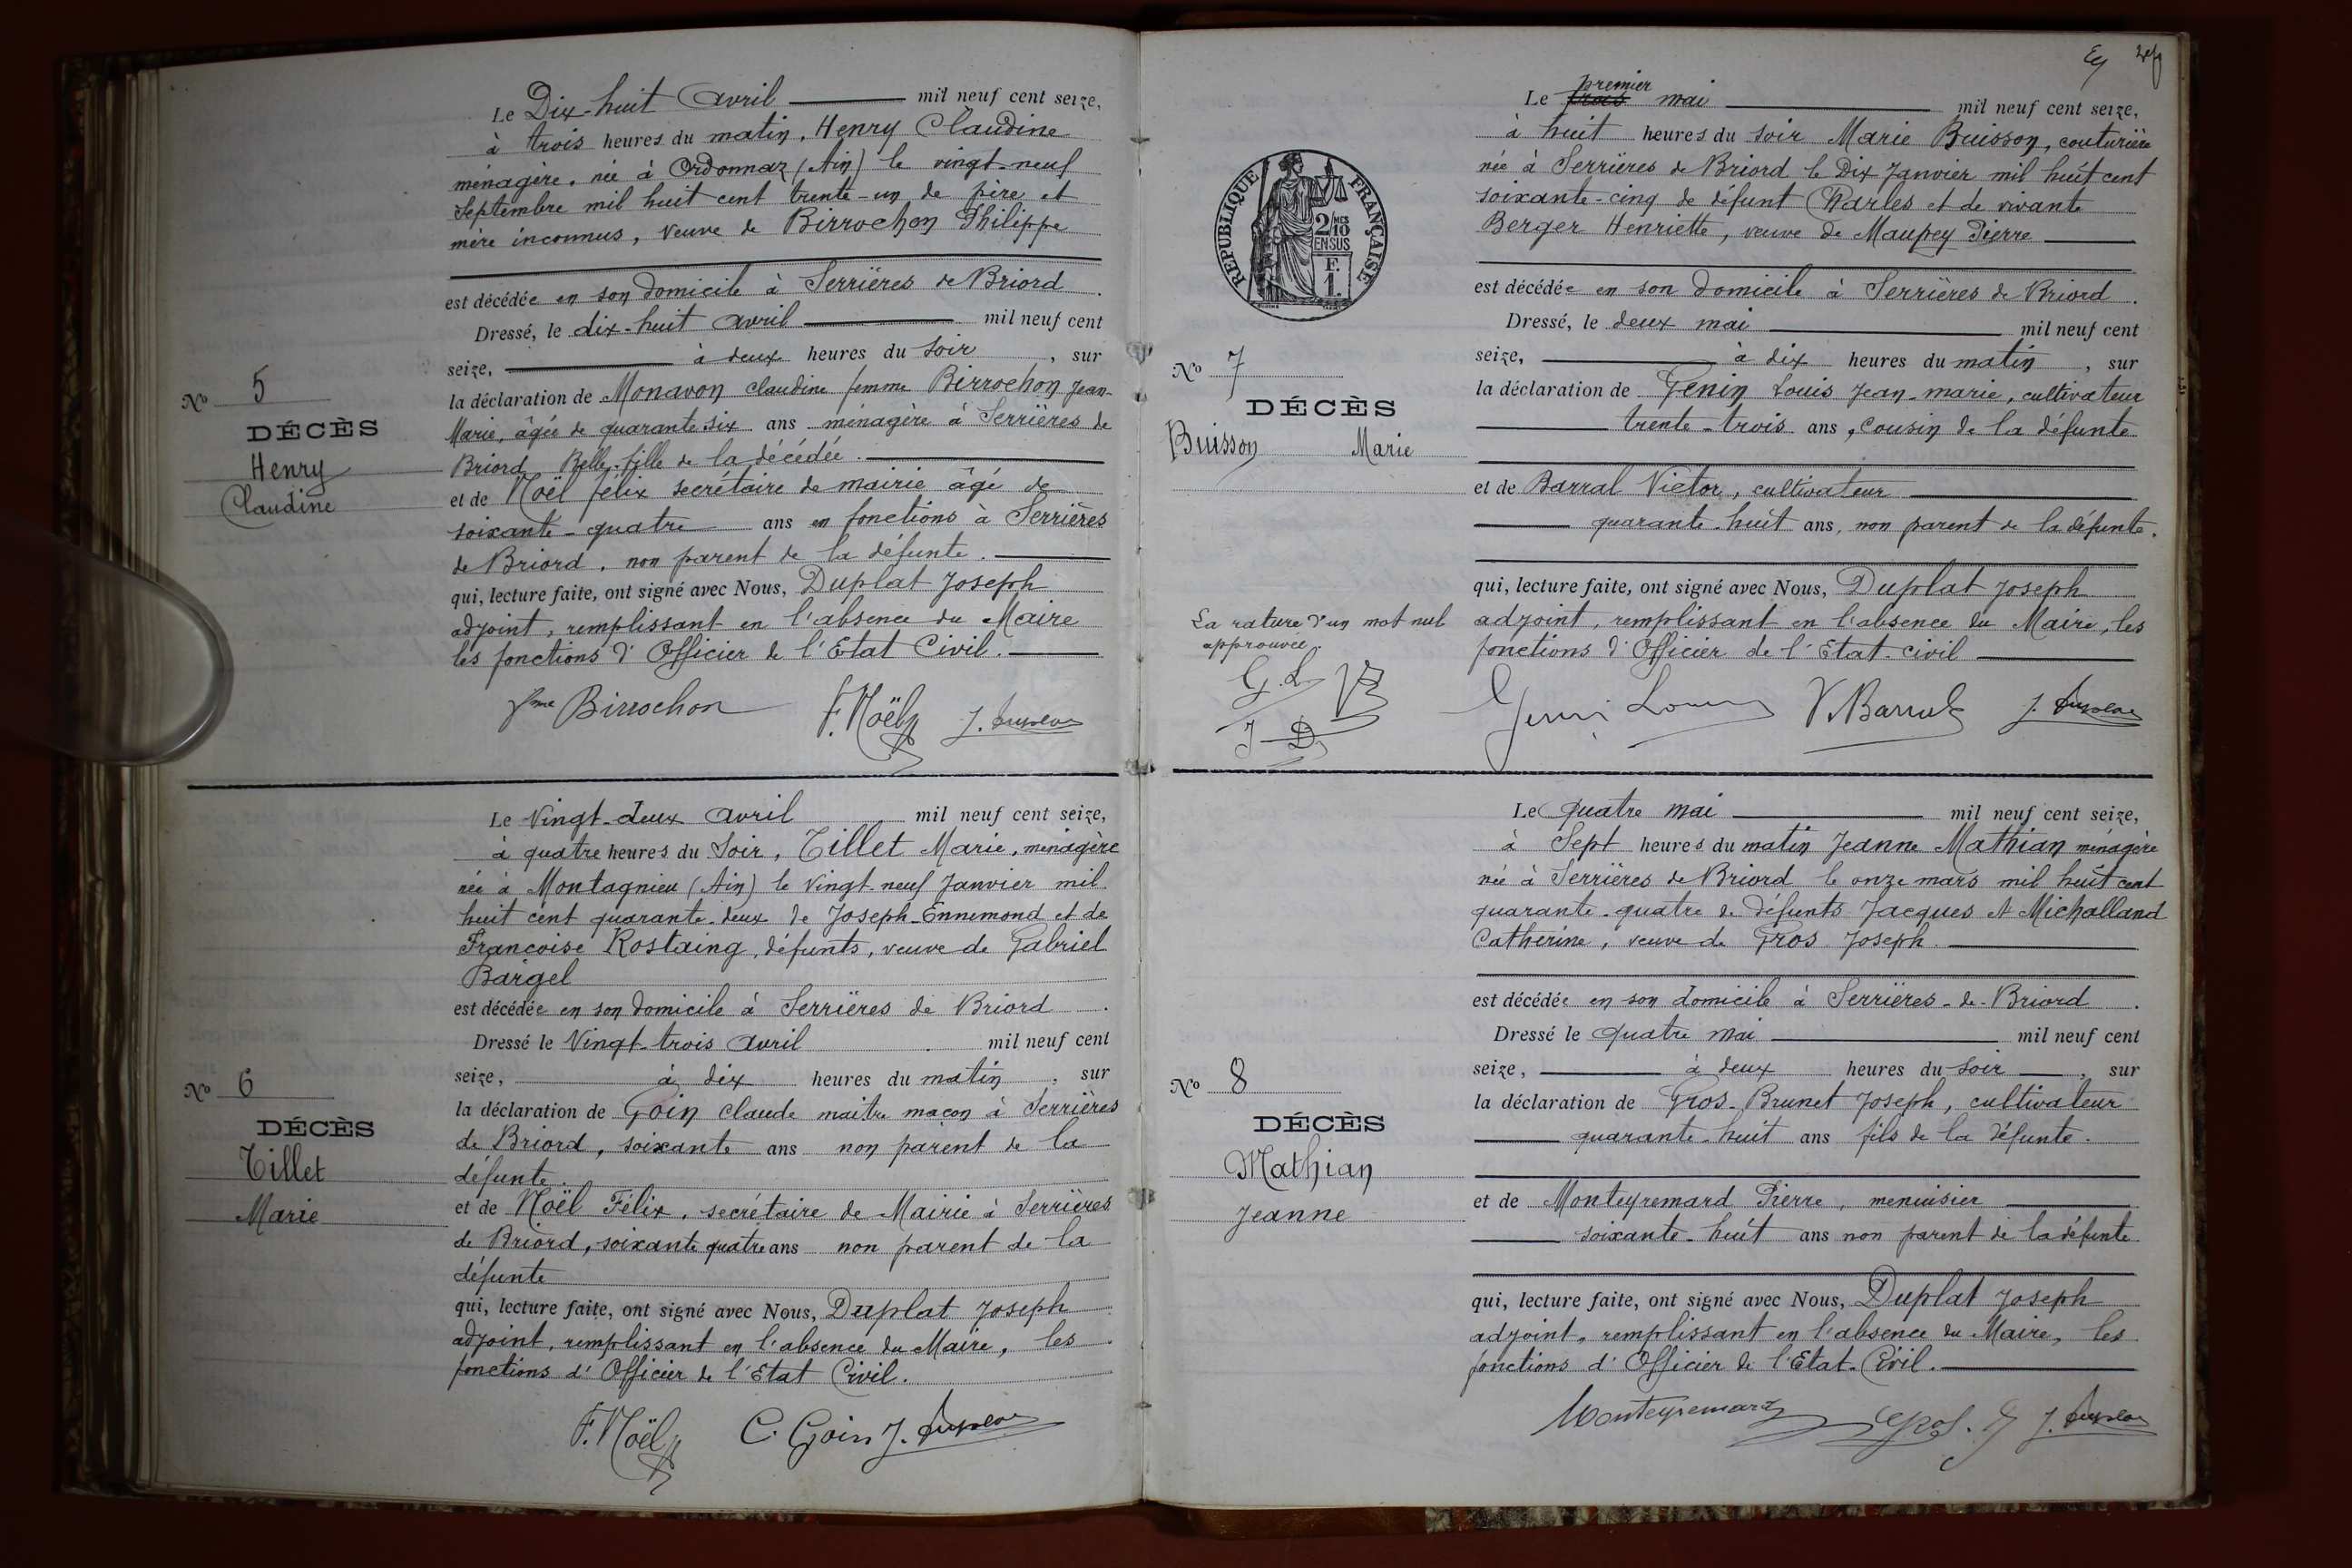 Le Dix-huit Avril mil neuf cent seize,
à trois heures du matin, Henry Claudine
ménagère, née à Ordonnaz (Ain) le vingt-neuf
Septembre mil huit cent trente-un de père et
mère inconnus, veuve de Birrochon Philippe
est décédée en son domicile à Serrières de Briord.
Dressé, le dix-huit avril mil neuf cent
seize, à deux heures du soir, sur
la déclaration de Monavon Claudine femme Birrochon Jean-
Marie, âgée de quarante six ans ménagère à Serrières de
Briord Belle-fille de la décédée.
et de Noël félix secrétaire de mairie âgé de
soixante-quatre ans en fonctions à Serrières
de Briord, non parent de la défunte.
qui, lecture faite, ont signé avec Nous, Duplat Joseph
adjoint, remplissant en l'absence du Maire
les fonctions d'Officier de l'Etat Civil.
Fme Birrochon F. Noël J. Duplat
No 5
DÉCÈS
Henry
Claudine
Le Vingt-deux avril mil neuf cent seize,
à quatre heures du Soir, Tillet Marie, ménagère
née à Montagnieu (Ain) le Vingt-neuf Janvier mil
huit cent quarante-deux de Joseph-Ennemond et de
Françoise Rostaing, défunts, veuve de Gabriel
Bargel
est décédée en son domicile à Serrières de Briord.
Dressé le Vingt-trois avril mil neuf cent
seize, à dix heures du matin, sur
la déclaration de Goin Claude maitre maçon à Serrières
de Briord, soixante ans non parent de la
défunte.
et de Noël Félix, secrétaire de Mairie à Serrières
de Briord, soixante quatre ans non parent de la
défunte
qui, lecture faite, ont signé avec Nous, Duplat Joseph
adjoint, remplissant en l'absence du Maire, les
fonctions d'Officier de l'Etat Civil.
F. Noël C. Goin J. Duplat
No 6
DÉCÈS
Tillet
Marie
Le trois premier mai mil neuf cent seize,
à huit heures du soir Marie Buisson, couturière
née à Serrières de Briord le Dix Janvier mil huit cent
soixante-cinq de défunt Charles et de vivante
Berger Henriette, veuve de Maupey Pierre
est décédée en son domicile à Serrières de Briord.
Dressé, le deux mai mil neuf cent
seize, à dix heures du matin, sur
la déclaration de Genin Louis Jean-marie, cultivateur
trente-trois ans, Cousin de la défunte
et de Barral Victor, cultivateur
quarante-huit ans, non parent de la défunte.
qui, lecture faite, ont signé avec Nous, Duplat Joseph
adjoint, remplissant en l'absence du Maire, les
fonctions d'Officier de l'Etat-civil
Genin Louis V. Barral J. Duplat
RÉPUBLIQUE FRANÇAISE
2/10 MES
EN SUS
F.
1.
No 7
DÉCÈS
Buisson Marie
La rature d'un mot nul
approuvée.
G. L. VB
J D
Le quatre mai mil neuf cent seize,
à Sept heures du matin Jeanne Mathian ménagère
née à Serrières de Briord le onze mars mil huit cent
quarante-quatre de défunts Jacques et Michalland
Catherine, veuve de Gros Joseph.
est décédée en son domicile à Serrières-de-Briord.
Dressé le quatre mai mil neuf cent
seize, à deux heures du soir, sur
la déclaration de Gros-Brunet Joseph, cultivateur
quarante-huit ans fils de la défunte.
et de Monteyremard Pierre, menuisier
soixante-huit ans non parent de la défunte
qui, lecture faite, ont signé avec Nous, Duplat Joseph
adjoint, remplissant en l'absence du Maire, les
fonctions d'Officier de l'Etat-Civil.
Monteyremard Gros. J. J. Duplat
No 8
DÉCÈS
Mathian
Jeanne